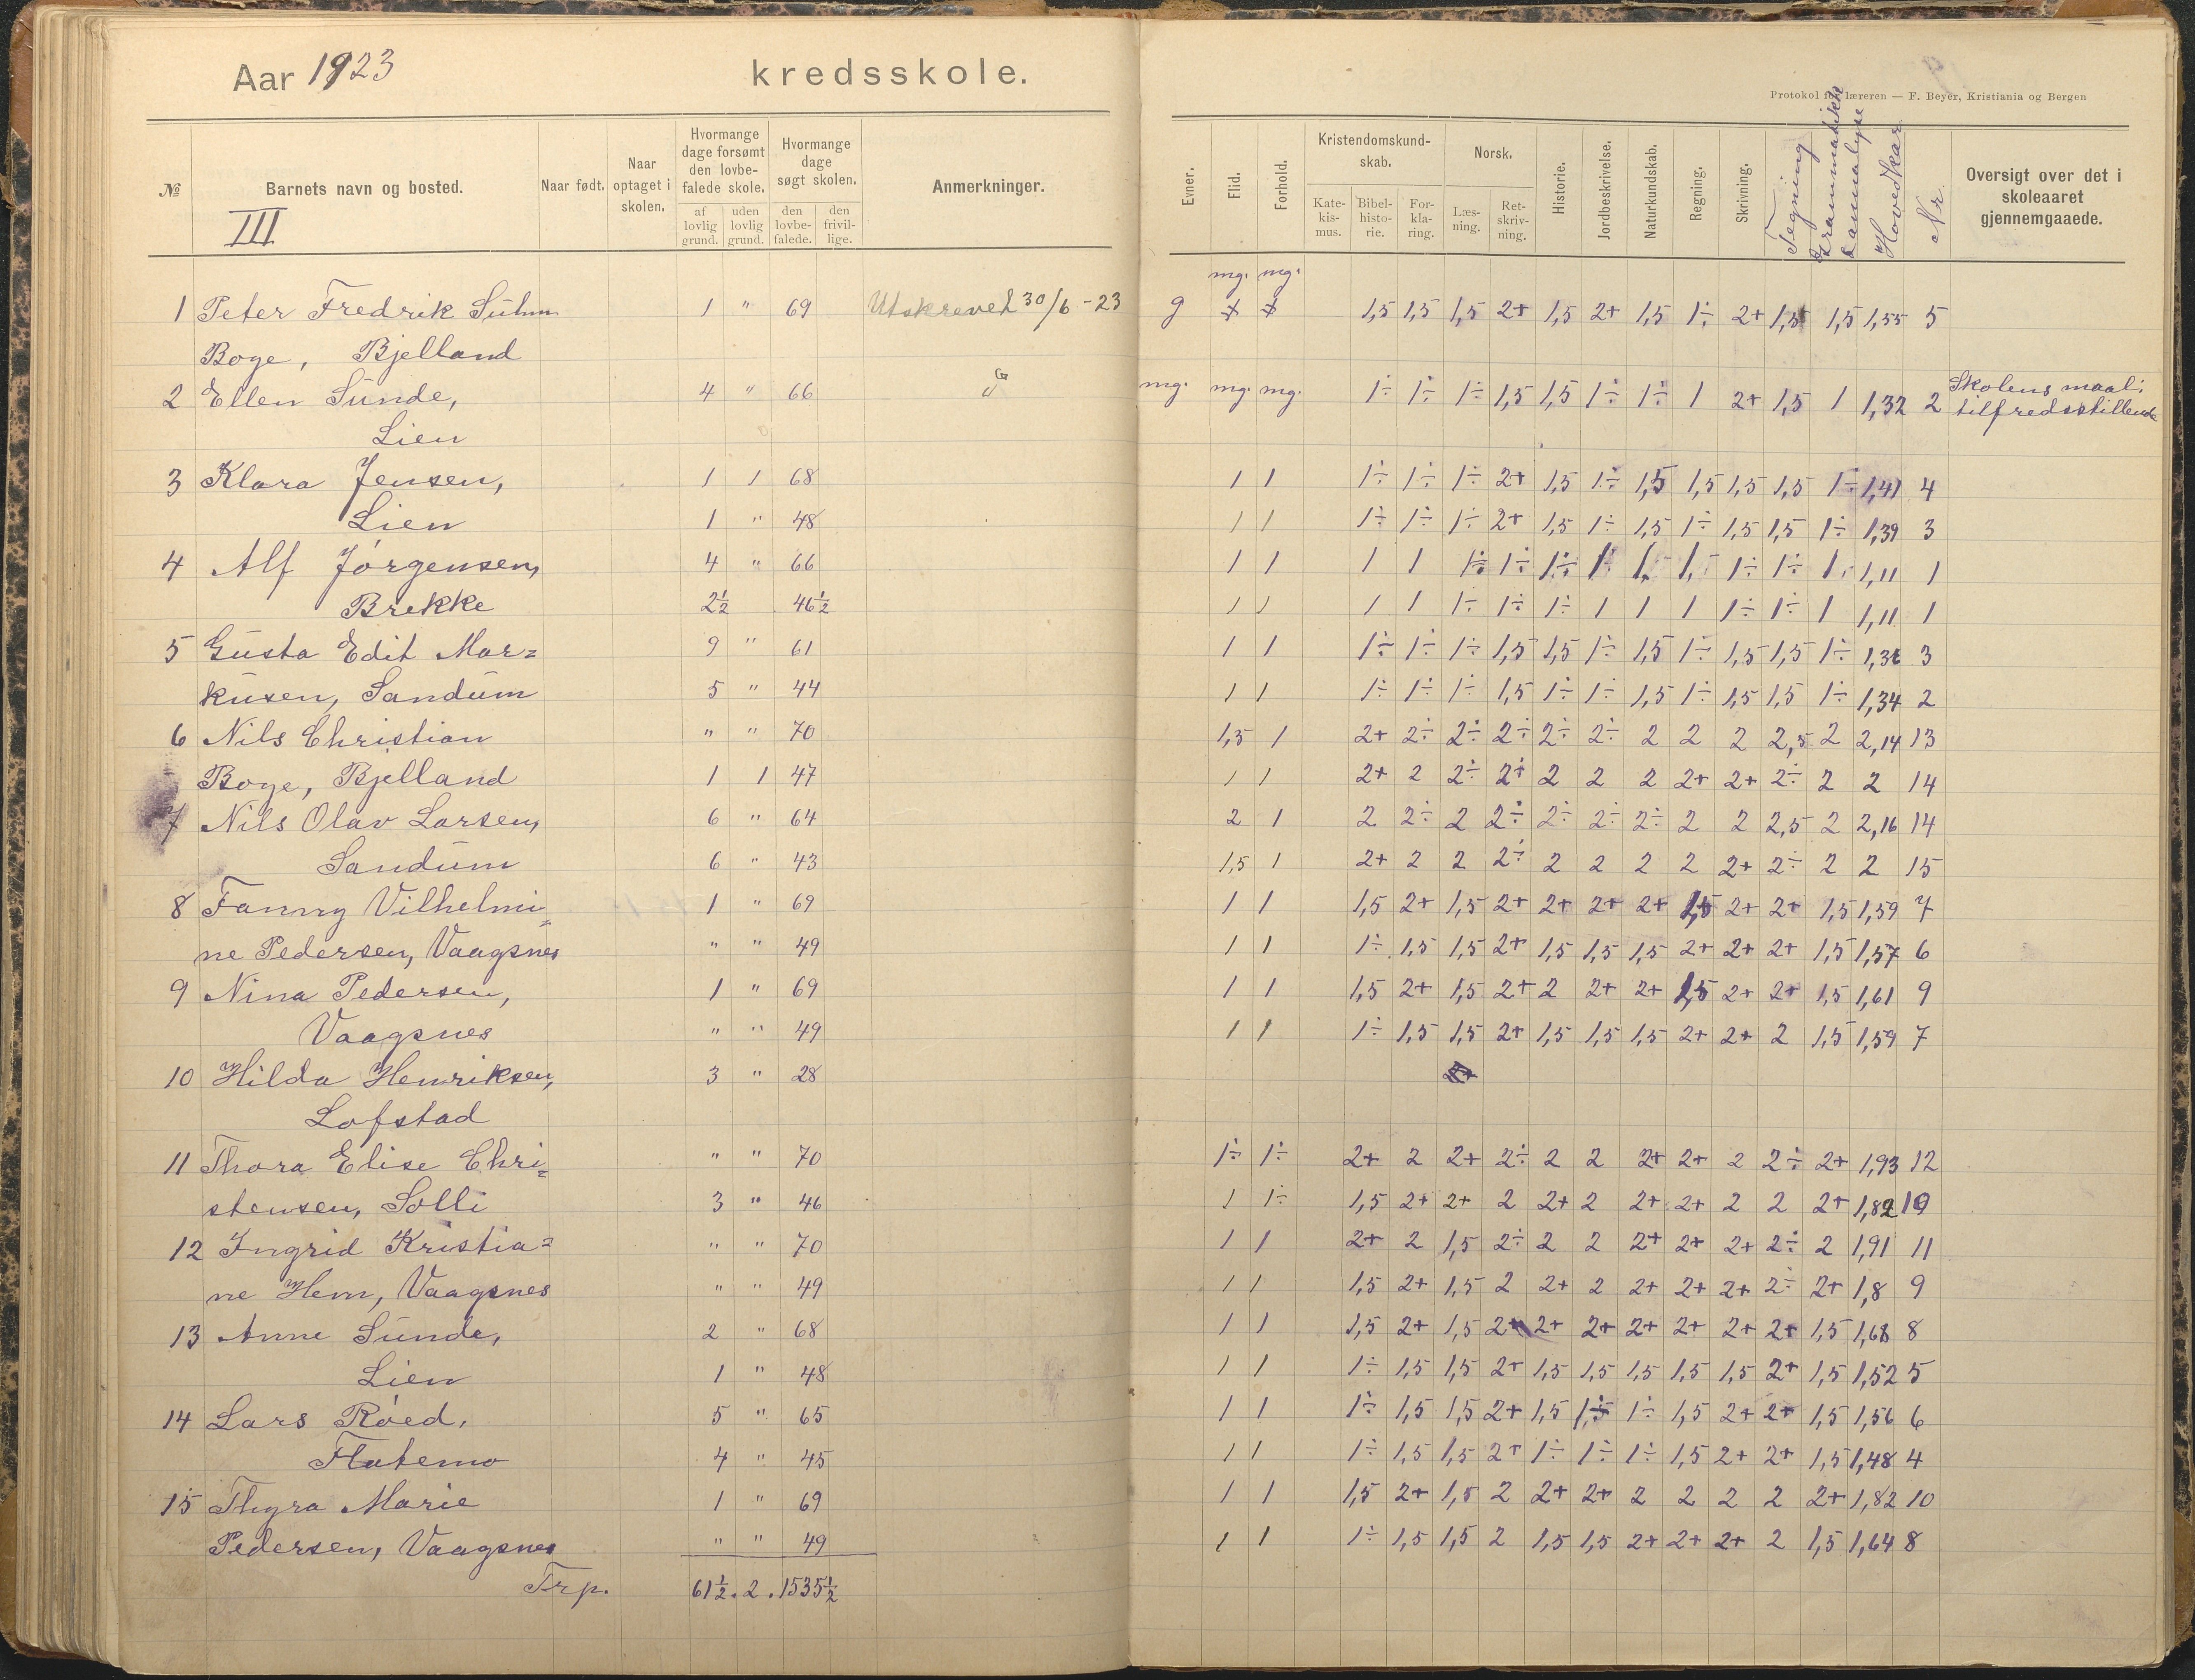 Aar 1923 kredsskole.
Protokol for læreren — F. Beyer, Kristiania og Bergen
№ Barnets navn og bosted. Naar født. Naar optaget i skolen. Hvormange dage forsømt den lovbefalede skole. af lovlig grund. uden lovlig grund. Hvormange dage søgt skolen. den lovbefalede. den frivillige. Anmerkninger.
III
Evner. Flid. Forhold. Kristendomskundskab. Katekismus. Bibelhistorie. Forklaring. Norsk. Læsning. Retskrivning. Historie. Jordbeskrivelse. Naturkundskab. Regning. Skrivning. Tegning Grammatikk Hovedkar Nr. Oversigt over det i skoleaaret gjennemgaaede.
mg. mg.
1 Peter Fredrik Suhm 1 " 69 Utskrevet 30/6-23 g 1,5 1,5 1,5 2+ 1,5 2+ 1,5 1÷ 2+ 1,5 1,5 1,55 5
Boge, Bjelland
2 Ellen Sunde, 4 " 66 mg. mg. mg. 1÷ 1÷ 1÷ 1,5 1,5 1÷ 1÷ 1 2+ 1,5 1 1,32 2 Skolens maal: tilfredsstillende
Lien
3 Klara Jensen, 1 1 68 1 1 1÷ 1÷ 1÷ 2+ 1,5 1÷ 1,5 1,5 1,5 1,5 1÷ 1,41 4
Lien 1 " 48 1 1 1÷ 1÷ 1÷ 2+ 1,5 1÷ 1,5 1÷ 1,5 1,5 1÷ 1,39 3
4 Alf Jörgensen, 4 " 66 1 1 1 1 1÷ 1÷ 1÷ 1 1 1 1÷ 1÷ 1 1,11 1
Brekke 2½ 46½ 1 1 1 1 1÷ 1÷ 1÷ 1 1 1 1÷ 1÷ 1 1,11 1
5 Gusta Edit Mar= 9 " 61 1 1 1÷ 1÷ 1÷ 1,5 1,5 1÷ 1,5 1÷ 1,5 1,5 1÷ 1,36 3
kusen, Sandum 5 " 44 1 1 1÷ 1÷ 1÷ 1,5 1÷ 1÷ 1,5 1÷ 1,5 1,5 1÷ 1,34 2
6 Nils Christian " " 70 1,5 1 2+ 2÷ 2÷ 2÷ 2÷ 2÷ 2 2 2 2,5 2 2,14 13
Boge, Bjelland 1 1 47 1 1 2+ 2 2÷ 2÷ 2 2 2 2+ 2+ 2÷ 2 2 14
7 Nils Olav Larsen, 6 " 64 2 1 2 2÷ 2 2÷ 2÷ 2÷ 2÷ 2 2 2,5 2 2,16 14
Sandum 6 " 43 1,5 1 2+ 2 2 2÷ 2 2 2 2 2+ 2÷ 2 2 15
8 Fanny Vilhelmi= 1 " 69 1 1 1,5 2+ 1,5 2+ 2+ 2+ 2+ 1,5 2+ 2+ 1,5 1,59 7
ne Pedersen, Vaagsnes " " 49 1 1 1÷ 1,5 1,5 2+ 1,5 1,5 1,5 2+ 2+ 2+ 1,5 1,57 6
9 Nina Pedersen, 1 " 69 1 1 1,5 2+ 1,5 2+ 2 2+ 2+ 1,5 2+ 2+ 1,5 1,61 9
Vaagsnes " " 49 1 1 1÷ 1,5 1,5 2+ 1,5 1,5 1,5 2+ 2+ 2 1,5 1,59 7
10 Hilda Henriksen, 3 " 28
Lofstad
11 Thora Elise Chri= " " 70 1÷ 1÷ 2+ 2 2+ 2÷ 2 2 2+ 2+ 2 2÷ 2+ 1,93 12
stensen, Solli 3 " 46 1 1÷ 1,5 2+ 2+ 2 2+ 2 2+ 2+ 2 2 2+ 1,82 10
12 Ingrid Kristia= " " 70 1 1 2+ 2 1,5 2÷ 2 2 2+ 2+ 2+ 2÷ 2 1,91 11
ne Hem, Vaagsnes " " 49 1 1 1,5 2+ 1,5 2 2+ 2 2+ 2+ 2+ 2÷ 2+ 1,8 9
13 Anne Sunde, 2 " 68 1 1 1,5 2+ 1,5 2+ 2+ 2+ 2+ 2+ 2+ 2+ 1,5 1,68 8
Lien 1 " 48 1 1 1÷ 1,5 1,5 2+ 1,5 1,5 1,5 1,5 1,5 2+ 1,5 1,52 5
14 Lars Röed, 5 " 65 1 1 1÷ 1,5 1,5 2+ 1,5 1÷ 1÷ 1,5 2+ 2+ 1,5 1,56 6
Flatemo 4 " 45 1 1 1÷ 1,5 1,5 2+ 1÷ 1÷ 1÷ 1,5 2+ 2+ 1,5 1,48 4
15 Thyra Marie 1 " 69 1 1 1,5 2+ 1,5 2 2+ 2+ 2 2 2 2 2+ 1,82 10
Pedersen, Vaagsnes " " 49 1 1 1÷ 1,5 1,5 2 1,5 1,5 2+ 2+ 2+ 2 1,5 1,64 8
Trp. 61½. 2. 1535½